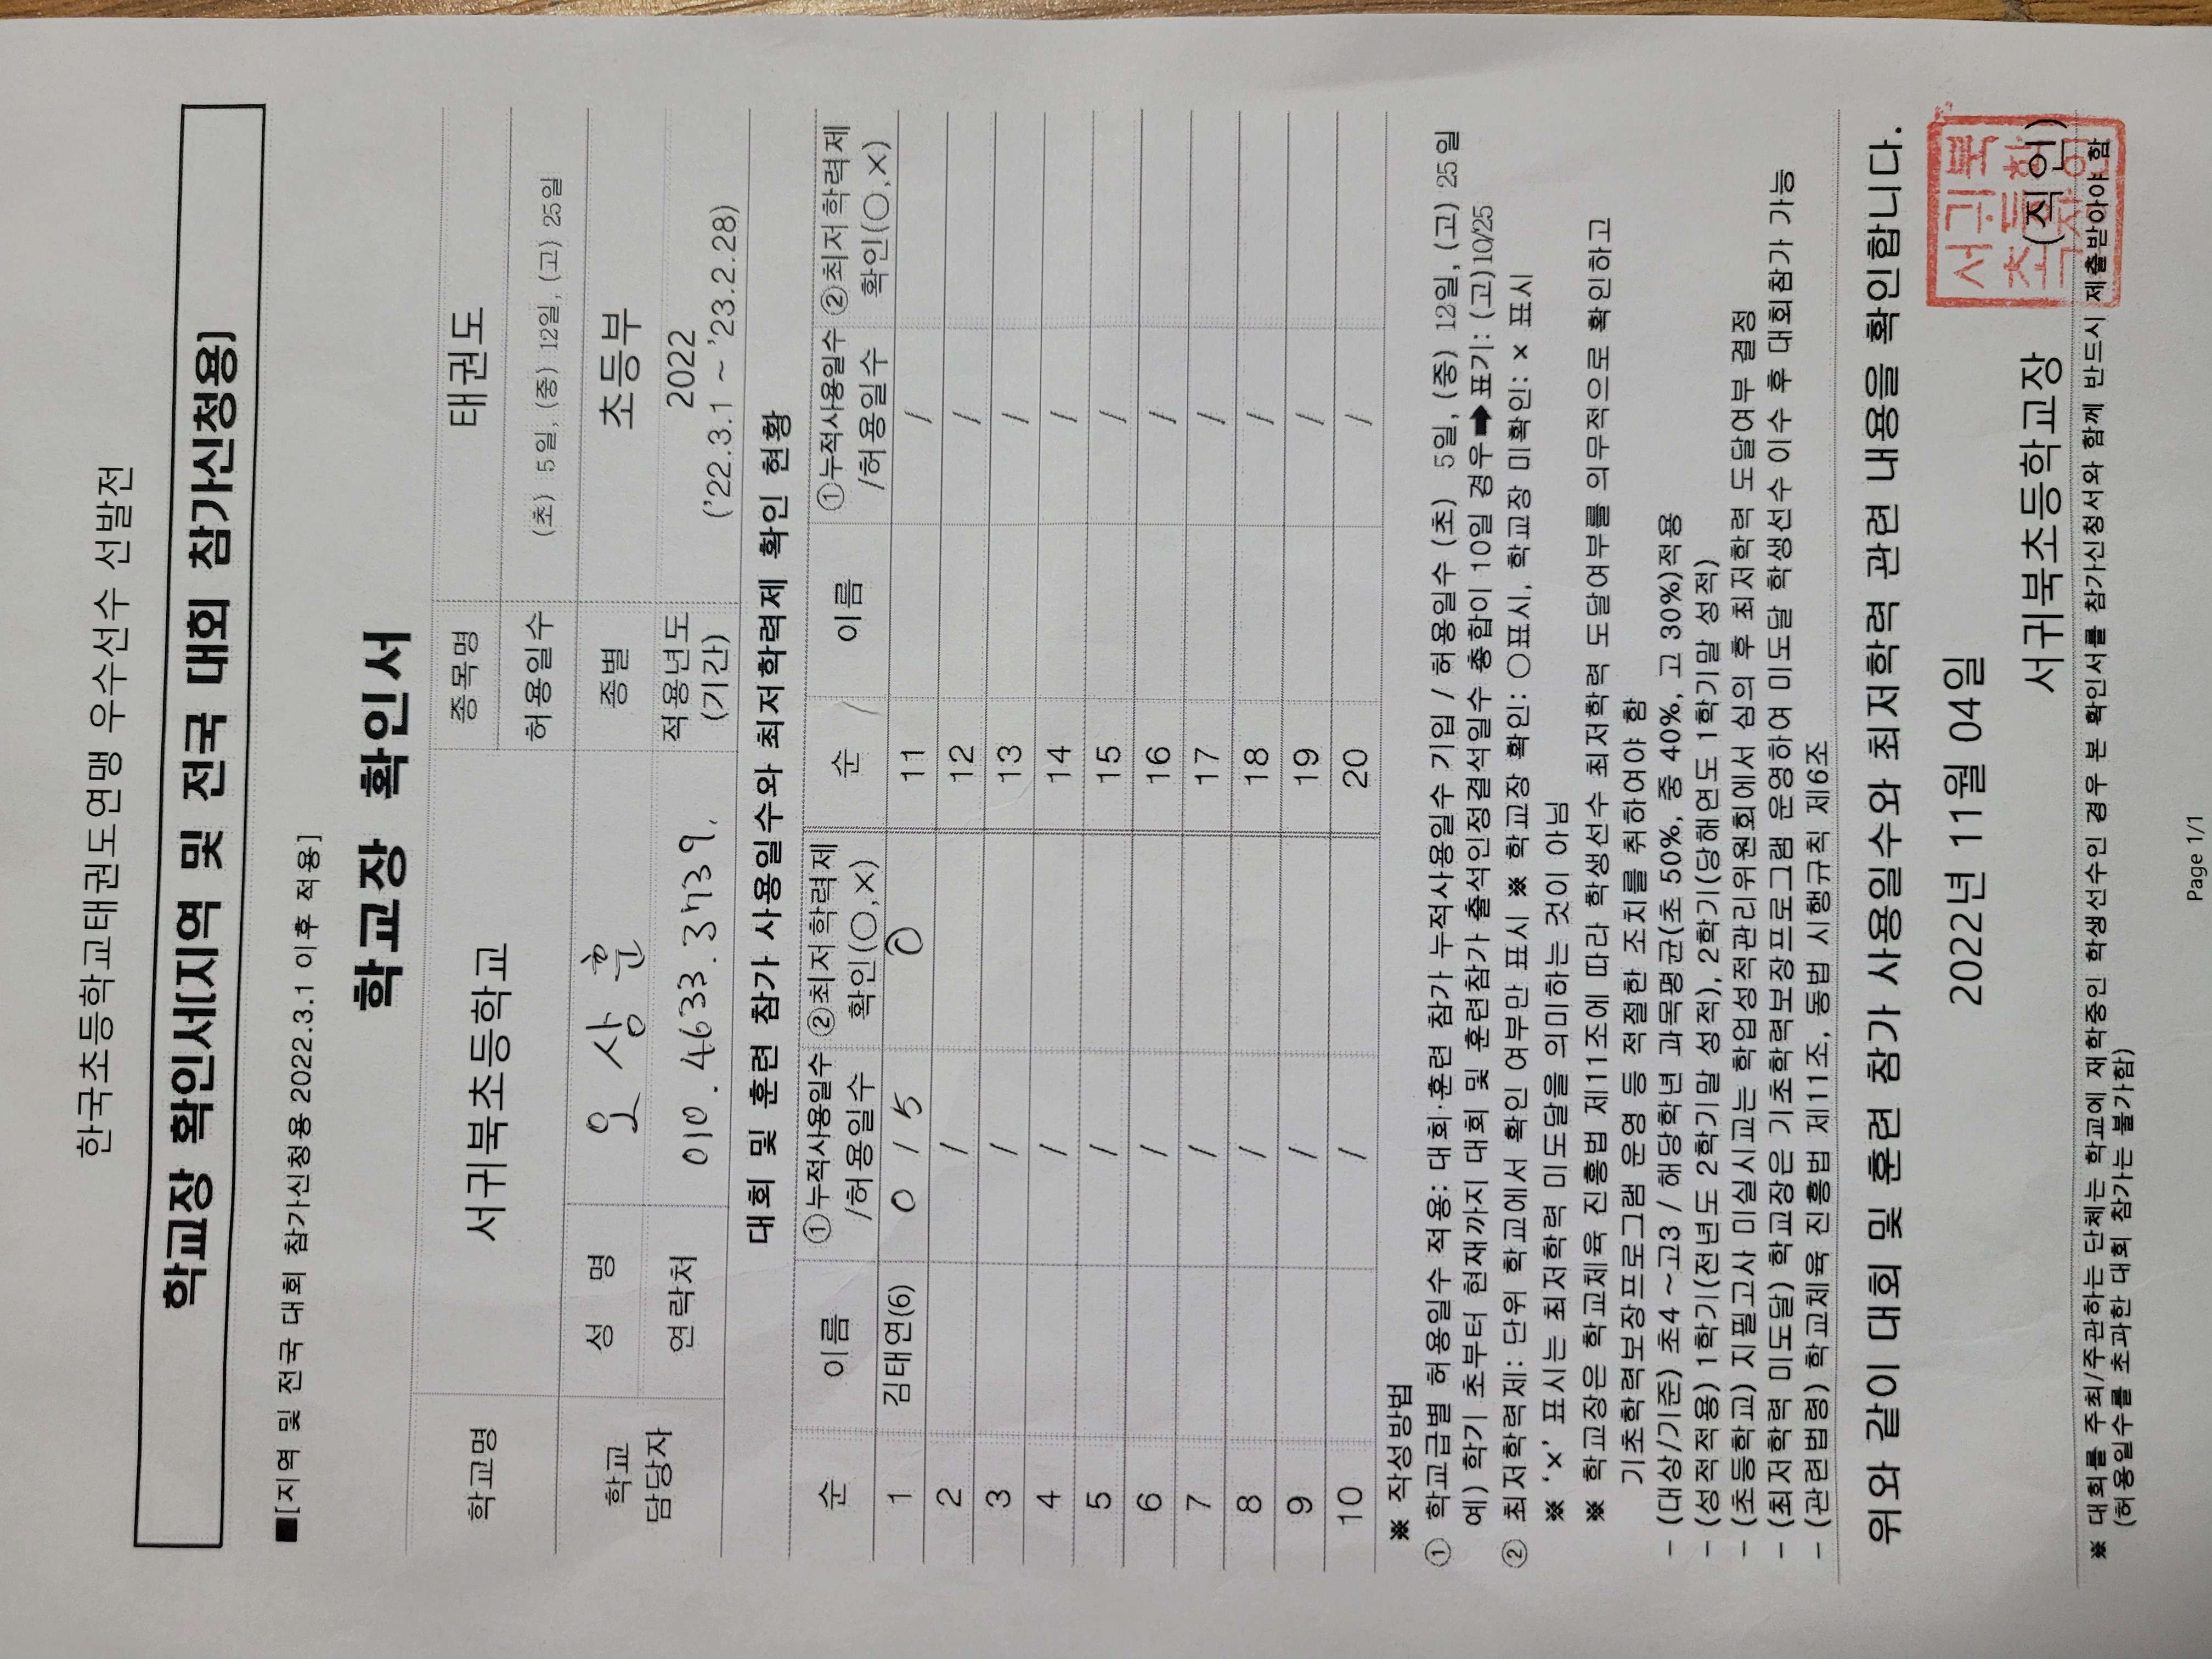 한국초등학교태권도연맹 우수선수 선발전
학교장 확인서[지역 및 전국 대회 참가신청용]
■[지역 및 전국 대회 참가신청용 2022.3.1 이후 적용]
학교장 확인서
학교명 서귀북초등학교 종목명 태권도
허용일수 (초) 5일, (중) 12일, (고) 25일
학교 담당자 성 명 오상훈 종별 초등부
연락처 010.4633.3739. 적용년도 (기간) 2022 ('22.3.1 ~ '23.2.28)
대회 및 훈련 참가 사용일수와 최저학력제 확인 현황
순 이름 ①누적사용일수 /허용일수 ②최저학력제 확인(○,×) 순 이름 ①누적사용일수 /허용일수 ②최저학력제 확인(○,×)
1 김태연(6) 0 / 5 O 11 /
2 / 12 /
3 / 13 /
4 / 14 /
5 / 15 /
6 / 16 /
7 / 17 /
8 / 18 /
9 / 19 /
10 / 20 /
※ 작성방법
① 학교급별 허용일수 적용: 대회·훈련 참가 누적사용일수 기입 / 허용일수 (초) 5일, (중) 12일, (고) 25일
예) 학기 초부터 현재까지 대회 및 훈련참가 출석인정결석일수 총합이 10일 경우➡표기: (고)10/25
② 최저학력제: 단위 학교에서 확인 여부만 표시 ※ 학교장 확인: ○표시, 학교장 미확인: × 표시
※ '×' 표시는 최저학력 미도달을 의미하는 것이 아님
※ 학교장은 학교체육 진흥법 제11조에 따라 학생선수 최저학력 도달여부를 의무적으로 확인하고
기초학력보장프로그램 운영 등 적절한 조치를 취하여야 함
- (대상/기준) 초4 ~고3 / 해당학년 과목평균(초 50%, 중 40%, 고 30%)적용
- (성적적용) 1학기(전년도 2학기말 성적), 2학기(당해연도 1학기말 성적)
- (초등학교) 지필고사 미실시교는 학업성적관리위원회에서 심의 후 최저학력 도달여부 결정
- (최저학력 미도달) 학교장은 기초학력보장프로그램 운영하여 미도달 학생선수 이수 후 대회참가 가능
- (관련법령) 학교체육 진흥법 제11조, 동법 시행규칙 제6조
위와 같이 대회 및 훈련 참가 사용일수와 최저학력 관련 내용을 확인합니다.
2022년 11월 04일
서귀북초등학교장 (직인)
서귀북
초등학
교장인
※ 대회를 주최/주관하는 단체는 학교에 재학중인 학생선수인 경우 본 확인서를 참가신청서와 함께 반드시 제출받아야 함
(허용일수를 초과한 대회 참가는 불가함)
Page 1/1